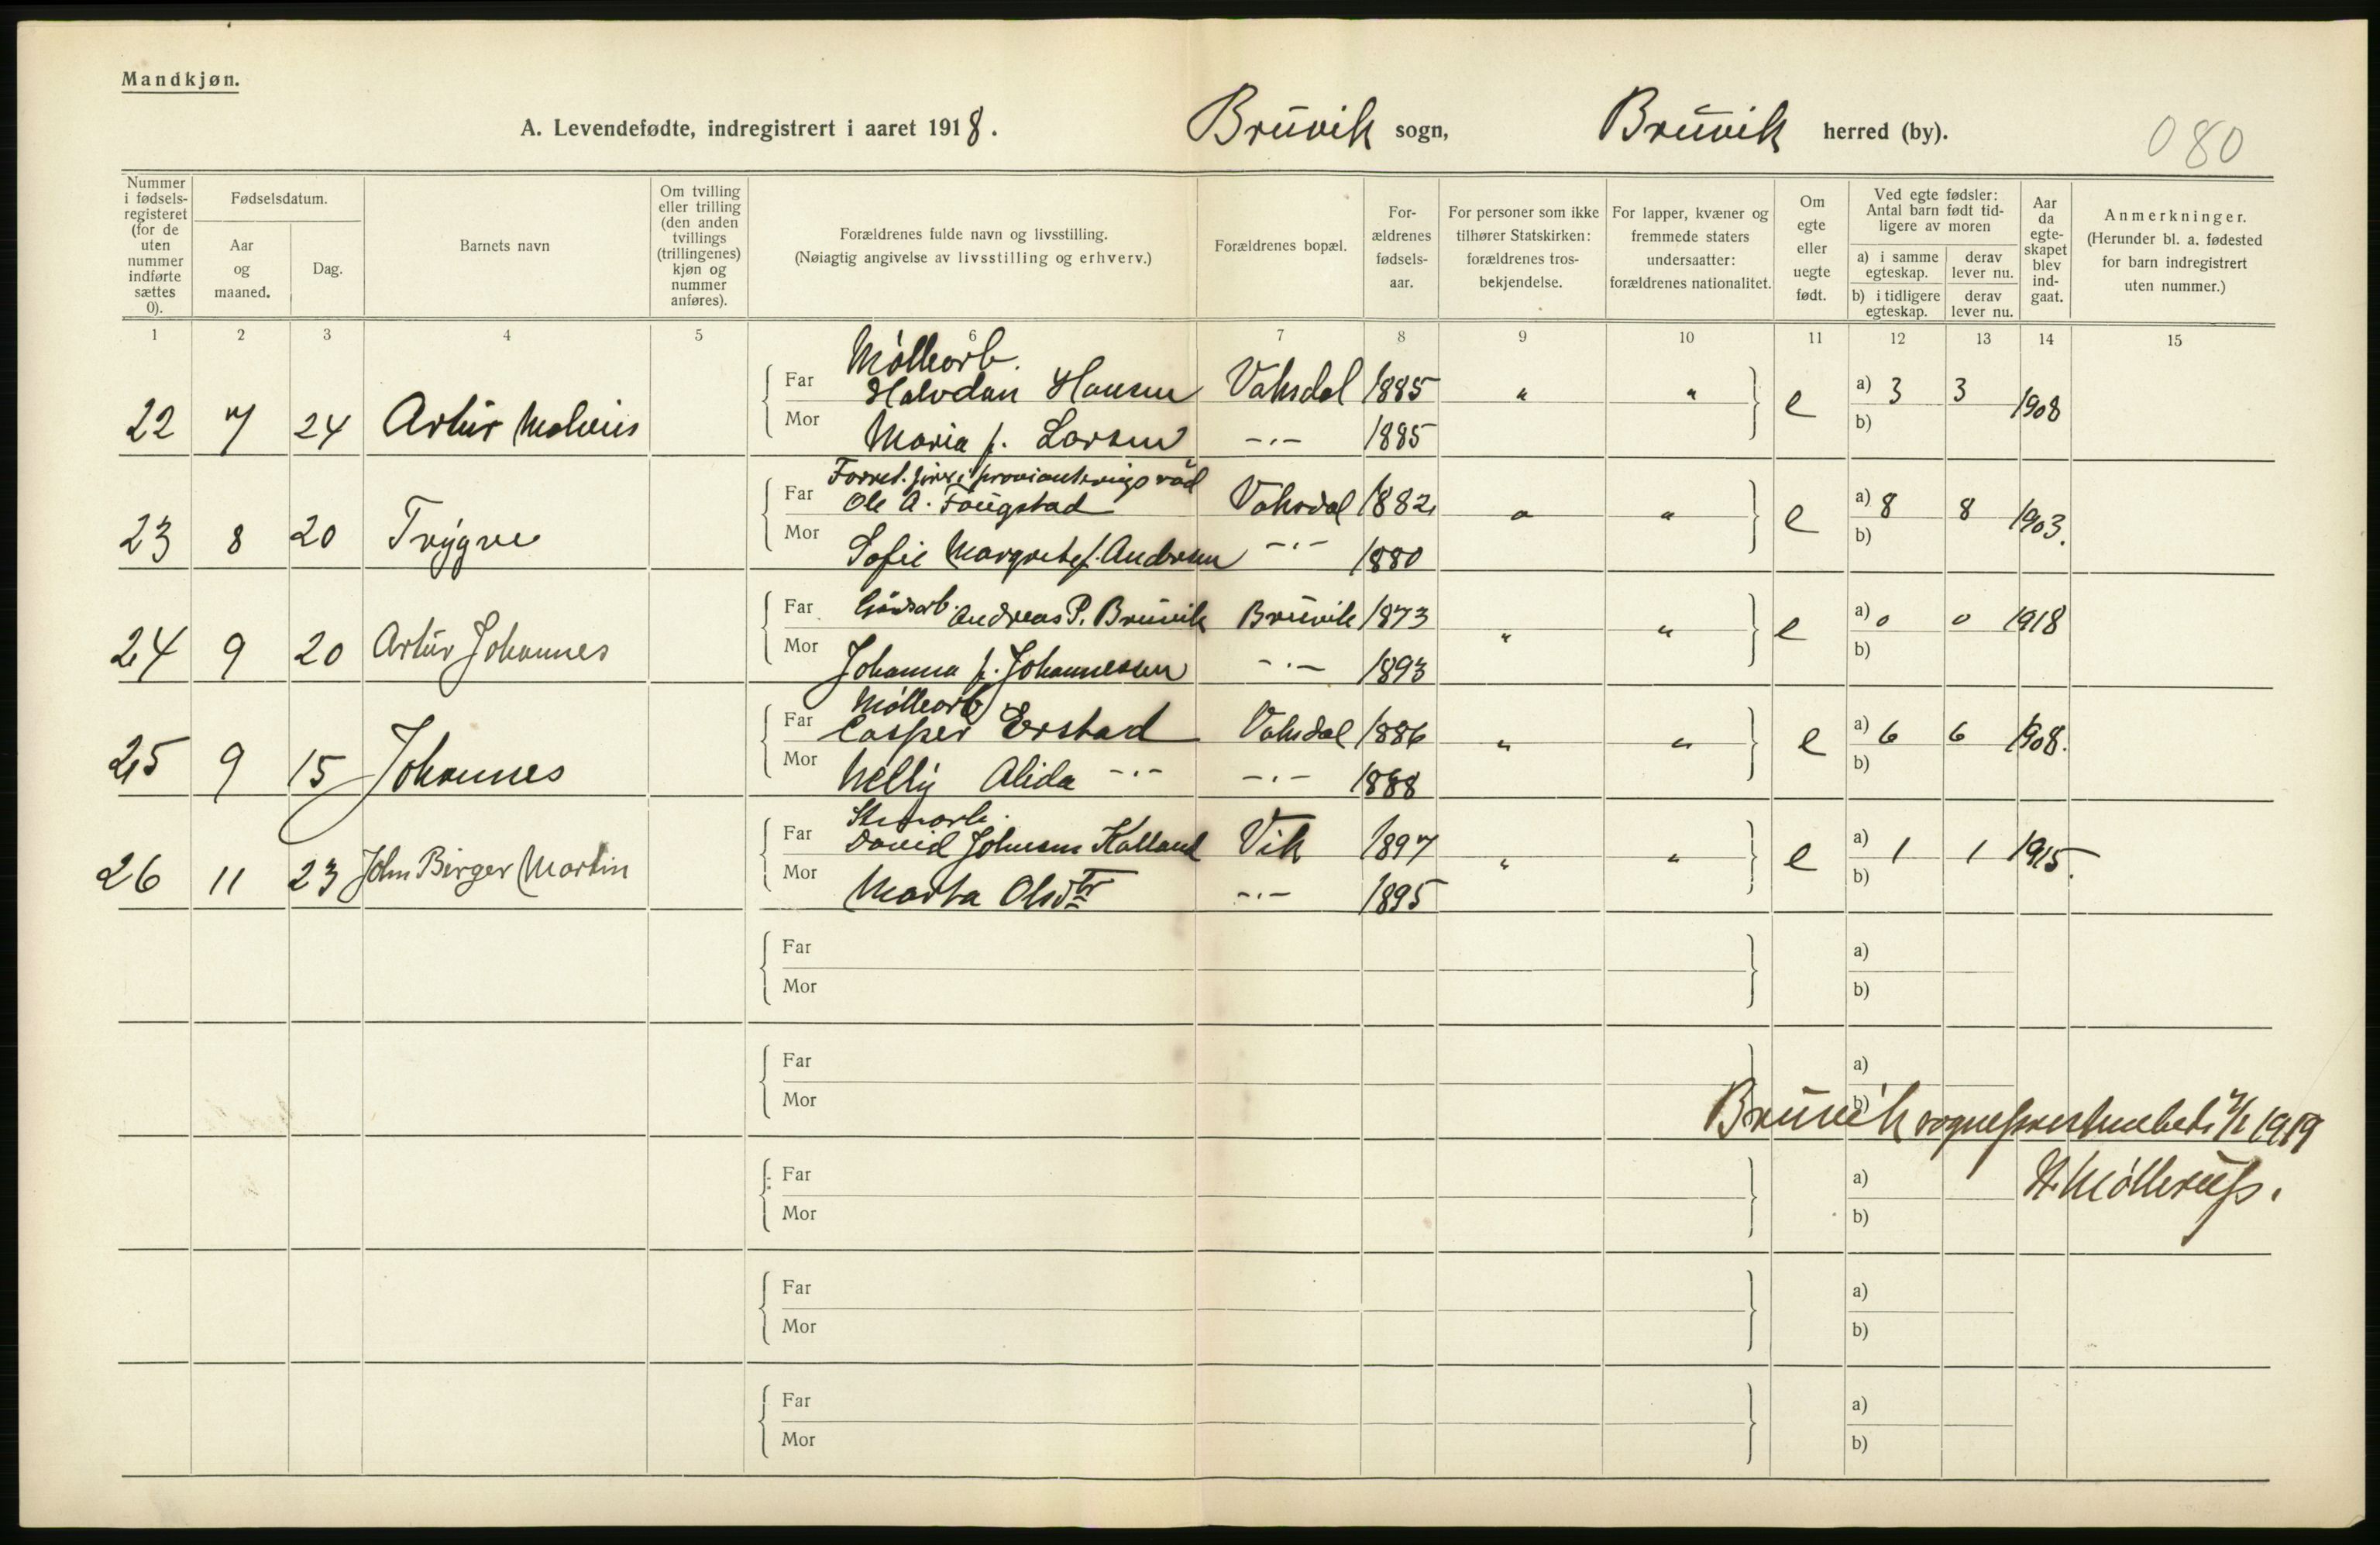 Mandkjøn.
A. Levendefødte, indregistrert i aaret 1918. Bruvik sogn, Bruvik herred (by). 080
Nummer i fødselsregisteret (for de uten nummer indførte sættes 0).
Fødselsdatum.
Aar og maaned.
Dag.
Barnets navn
Om tvilling eller trilling (den anden tvillings (trillingenes) kjøn og nummer anføres).
Forældrenes fulde navn og livsstilling.
(Nøiagtig angivelse av livsstilling og erhverv.)
Forældrenes bopæl.
Forældrenes fødselsaar.
For personer som ikke tilhører Statskirken: forældrenes trosbekjendelse.
For lapper, kvæner og fremmede staters undersaatter: forældrenes nationalitet.
Om egte eller uegte født.
Ved egte fødsler: Antal barn født tidligere av moren
a) i samme egteskap. derav lever nu.
b) i tidligere egteskap. derav lever nu.
Aar da egteskapet blev indgaat.
Anmerkninger.
(Herunder bl. a. fødested for barn indregistrert uten nummer.)
1 2 3 4 5 6 7 8 9 10 11 12 13 14 15
Møllearb.
22 7 24 Artur Malvin Far Halvdan Hansen Vaksdal 1885 " " e a) 3 3 1908
Mor Maria f. Larsen -.- 1885 b)
23 8 20 Trygve Far Ole A. Fougstad Vaksdal 1882 " " e a) 8 8 1903.
Mor Sofie Margrete f. Andersen -.- 1880 b)
24 9 20 Artur Johannes Far Andreas P. Bruvik Bruvik 1873 " " e a) 0 0 1918
Mor Johanna f. Johannessen -.- 1893 b)
Møllearb.
25 9 15 Johannes Far Casper Erstad Vaksdal 1886 " " e a) 6 6 1908.
Mor Nelly Alida -.- -.- 1888 b)
26 11 23 John Birger Martin Far David Johnsen Kalland Vik 1897 " " e a) 1 1 1915.
Mor Marta Olsdtr -.- 1895 b)
Far a)
Mor b)
Far a)
Mor b)
Bruvik sogneprestembede 1919
Far a)
H. Møllerup.
Mor b)
Far a)
Mor b)
Far a)
Mor b)